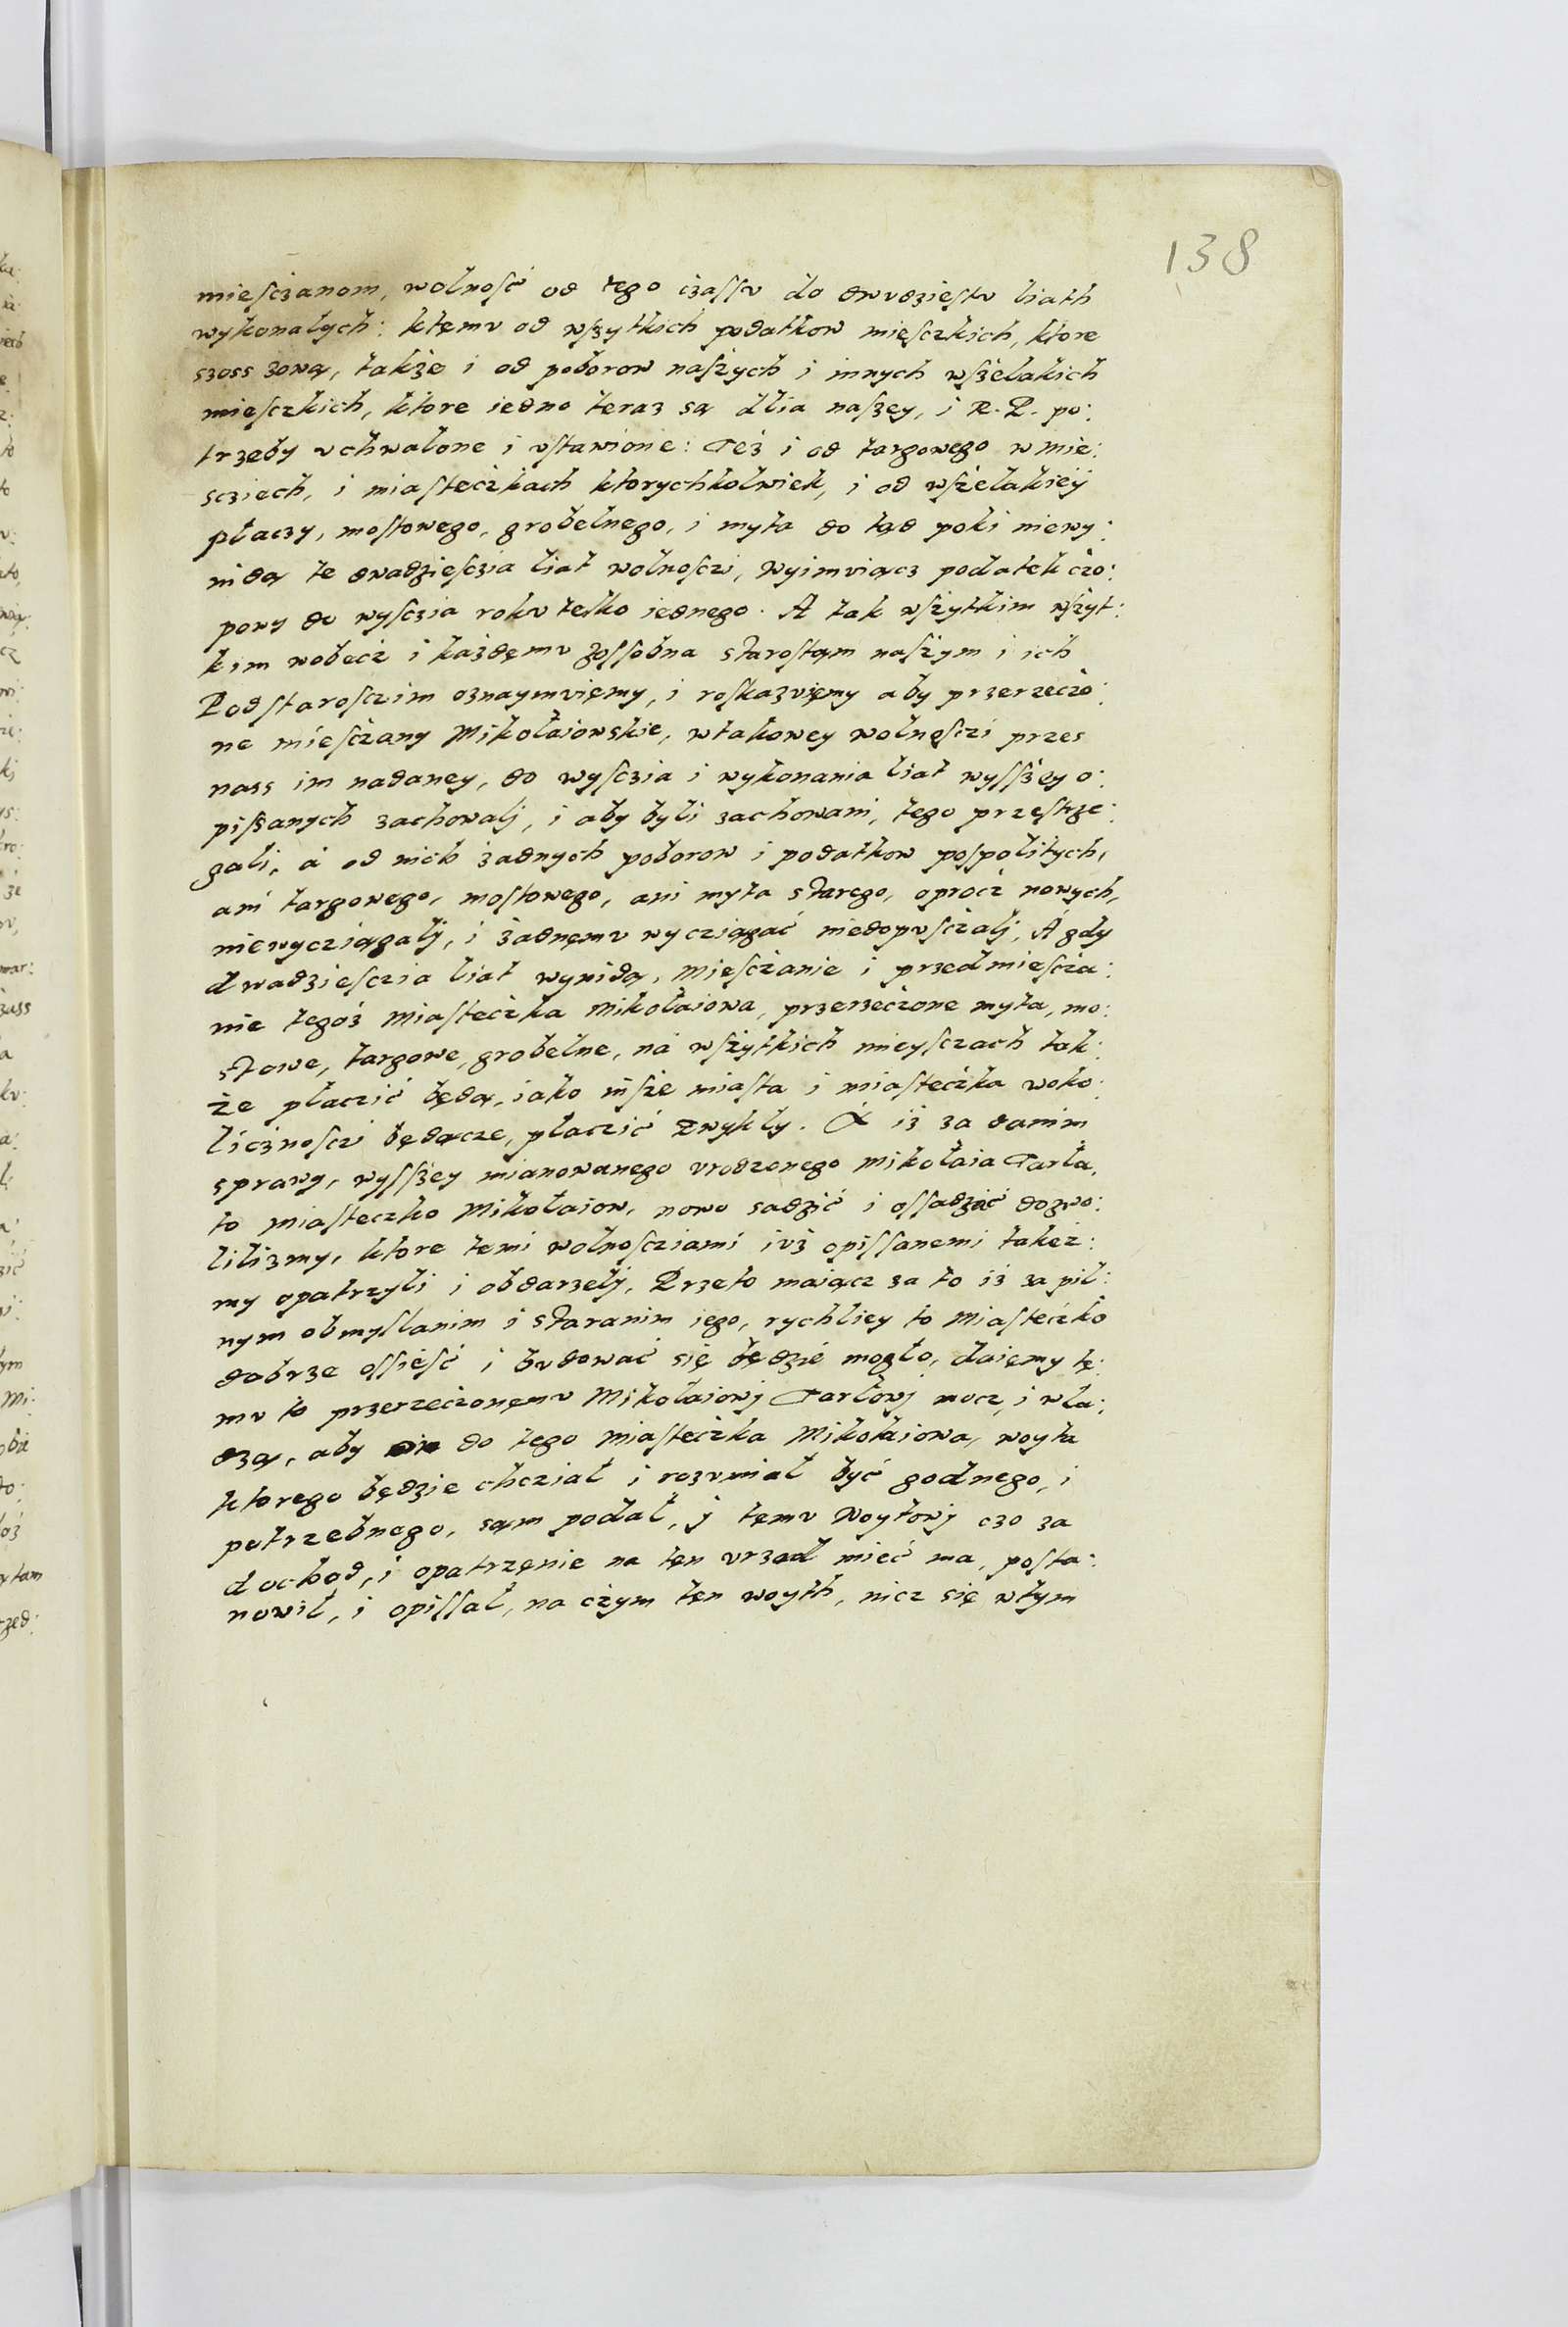 138
mięſczanom, wolnosć od tego czaſſv do dwvdzieſtv liath
wykonałych: ktęmv od wſzytkich podatkow mięſczkich, ktore
szoss zową, także i od poborow naſzych i innych wſzelakich
mięſczkich, ktore iedno teraz są dlia naſzey, i R. P. po:
trzeby vchwalone i vſtawione: Też i od targowego w mie:
scziech, i miaſteczkach ktorychkolwiek, i od wſzelakiey
płaczy, moſtowego, grobelnego, i myta do tąd poki niewy:
nidą te dwadzieſczia liat wolnoſczi, wyimviącz podatek czo:
powy do wyſczia rokv telko iednego. A tak wſzytkim wſzyt:
kim wobecz i każdęmv zoſſobna staroſtąm naſzym i ich
Podstaroſczim oznaymvięmy, i roſkazvięmy aby przerzeczo:
ne mieſczany Mikołaiowskie, wtakowey wolnoſczi przes
nass im nadaney, do wyſczia i wykonania liat wyſſzey o:
piſzanych zachowalj, i aby byli zachowani, tego przeſtrze:
gali, á od nich żadnych poborow i podatkow poſpolitych,
ani targowego, moſtowego, ani myta starego, oprocz nowych,
niewycziągalj, i żadnęmv wycziągać niedopvſczalj, A gdy
dwadzieſczia liat wynidą, Mieſczanie i przedmieſcza:
nie tegoż Miaſteczka Mikołaiowa, przerzeczone myta, mo:
stowe, targowe, grobelne, ná wſzytkich mieyſczach tak:
że płaczić będą, iako inſze miaſta i miaſteczka woko:
licznoſczi będącze, płaczić zwykły. A iż za danim
sprawy, wyſſzey mianowanego vrodzonego Mikołaia Tarła,
to Miaſteczko Mikołaiow, nowo sadzić i oſſadzać dozwo:
lilizmy, ktore temi wolnoſcziami ivż opiſſanemi takeż:
my opatrzyli i obdarzelj, Przeto maiącz za to iż za pil:
nym obmyſlanim i staranim iego, rychliey to Miaſteczko
dobrze oſſieść i bvdować się będzie mogło, daięmy tę:
mv to przerzeczonęmv Mikołaiowj Tarłowj mocz, i wła:
dzą, aby do tego Miaſteczka Mikołaiowa, woyta
ktorego będzie chcział i rozvmiał być godnego, i
potrzebnego, sąm podał, j tęmv Woytowj czo za
dochod, i opatrzęnie na tęn vrzad mieć ma, poſta:
nowił, i opiſſał, na czym tęn woyth, nicz się wtym